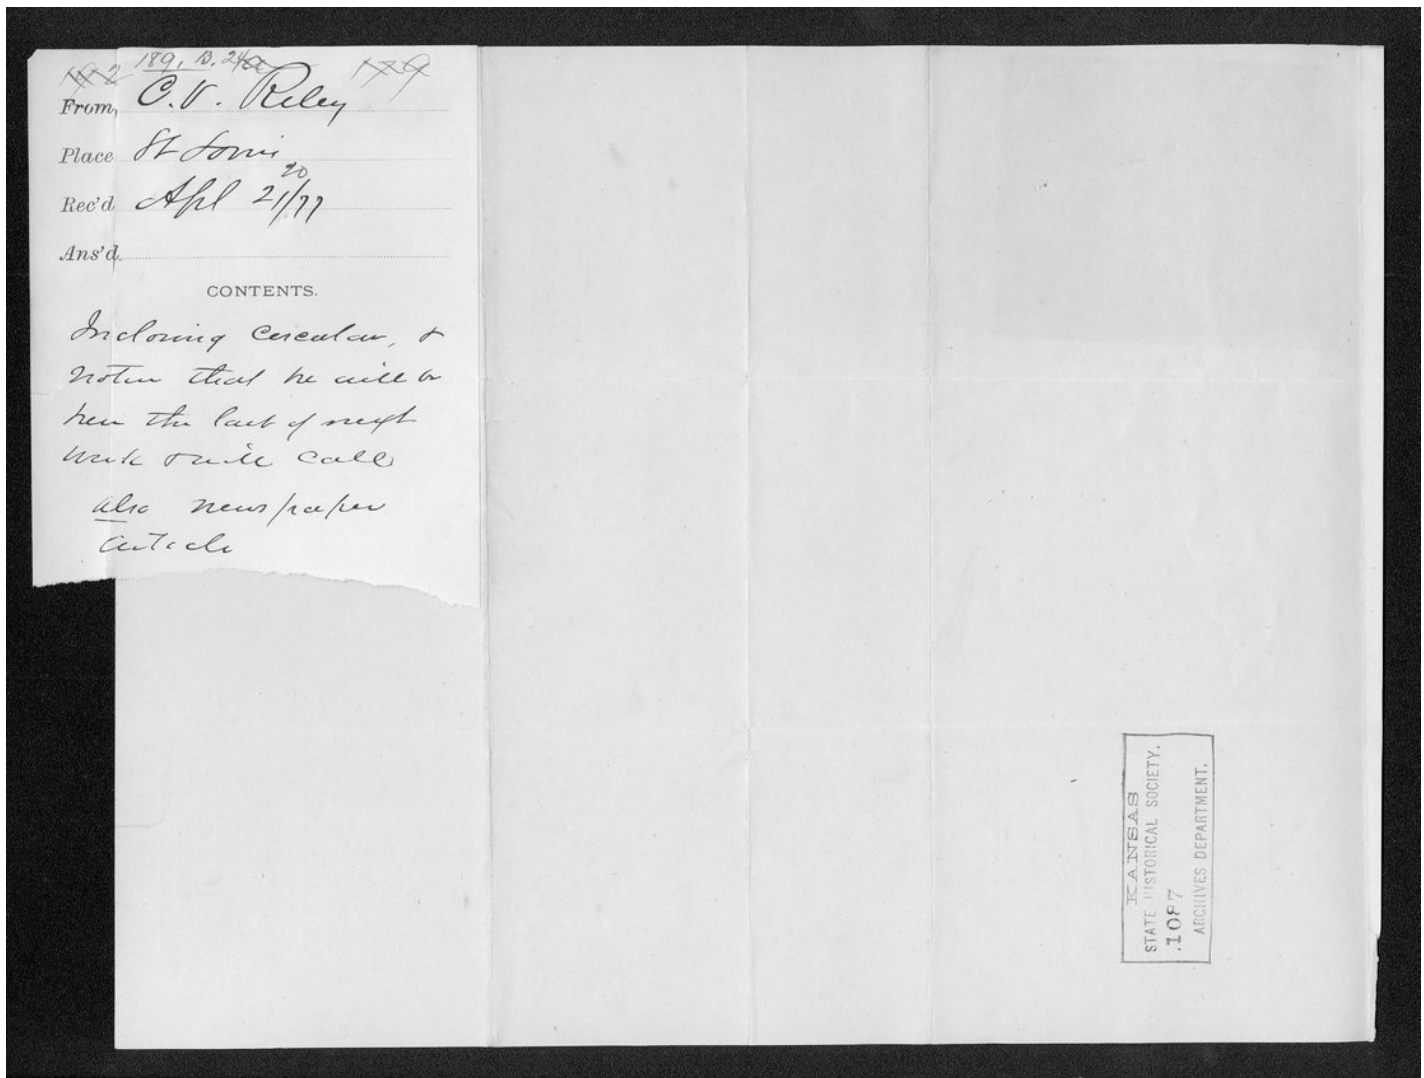 189, B. 24
From, C. V. Riley
Place St Louis
20
Rec'd Apl 21/77
Ans'd.
CONTENTS.
Inclosing Circular, &
Notice that he will be
here the last of next
week & will call
also newspaper
article
KANSAS
STATE HISTORICAL SOCIETY.
1087
ARCHIVES DEPARTMENT.